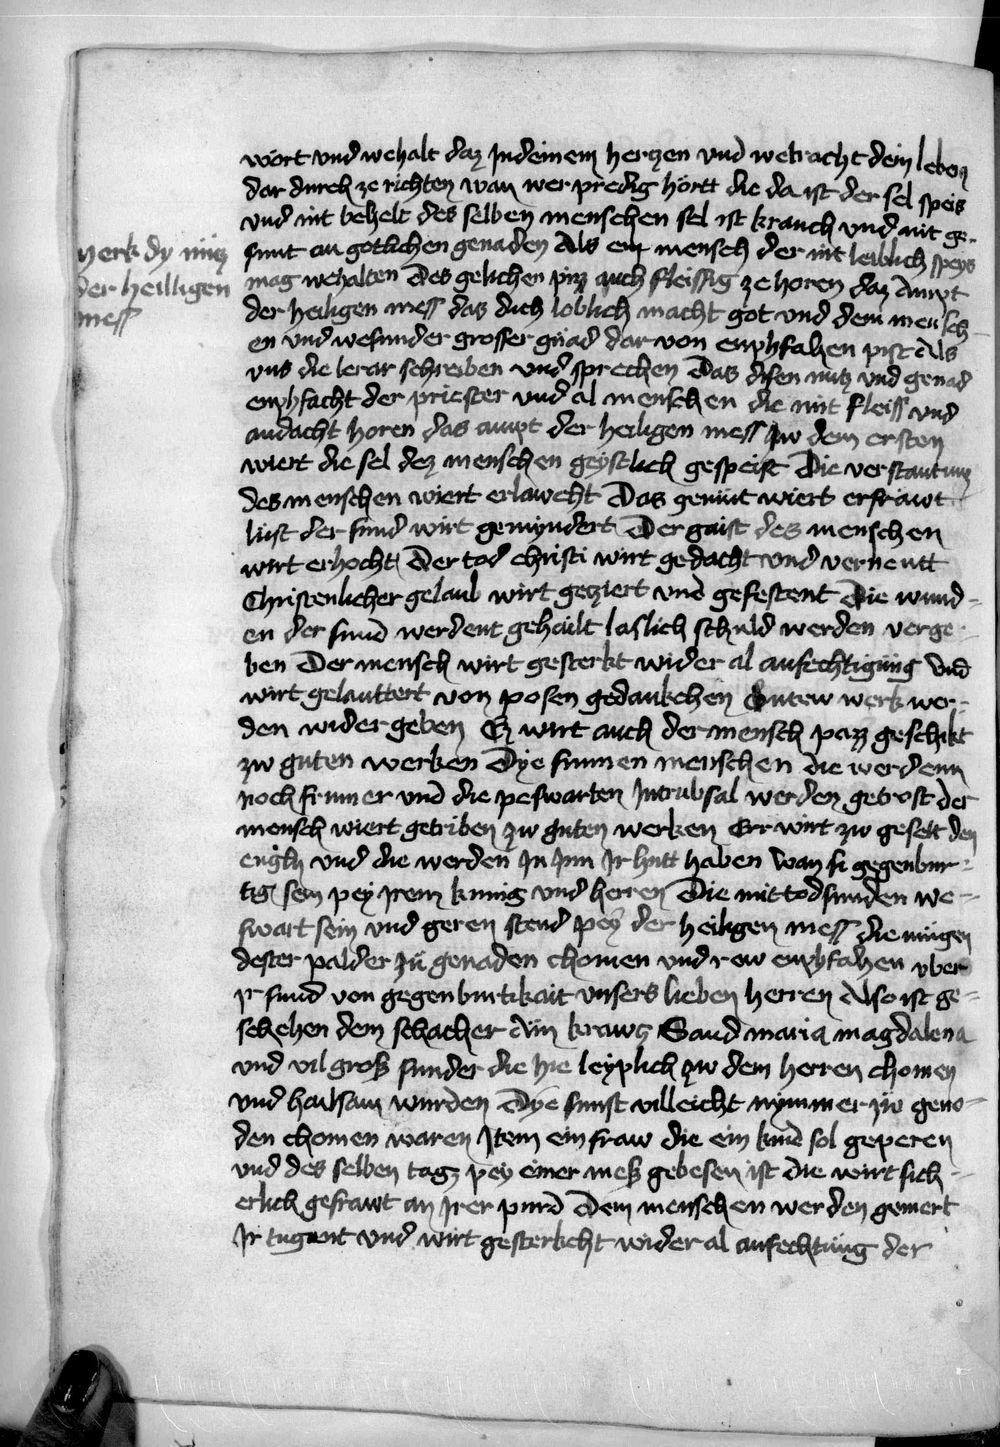 wort vnd wehalt daz Jn deinem herczen vnd wetracht dein leben
dar durch ze richten wan wer predig hortt die da ist der sel speis
vnd nit behelt des selben menschen sel ist kranch vnd nit ge-
sunt an gotlichen genaden Als ein mensch der nit leiblich speys
mag wehalten Des gelichen pizz auch fleissig ze horen daz Ampt
der heiligen mess das dich loblich macht got vnd dem mensch-
en vnd wesunder grosser gnad dar von enphfahen pist Als
vns die lerar schreiben vnd sprechen Das disen nutz vnd genad
enphfacht der priester vnd al menschen die mit fleiss vnd
andacht horen das ampt der heiligen mess Zw dem ersten
wiert die sel dez menschen geystlich gespeist Die verstantung
des menschen wiert erlawcht Das gemut wiert erfrawt
lust der sund wirt gemyndert Der gaist dez menschen
wirt erhocht Der tod christi wirt gedacht vnd verneutt
Christenlicher gelaub wirt gecziert vnd gefestent Die wund-
en der sund werdent gehailt laslich schuld werden verge-
ben Der mensch wirt gesterkt wider al anfechtigung vnd
wirt gelauttert von posen gedankchen Gutew werk wer-
den wider geben Ez wirt auch der mensch pazz geschikt
zw guten werken Dye frumen menschen die werdenn
noch frumer vnd die peswarten Jn trubsal werden getrost der
mensch wiert getriben zw guten werken Err wirt zw geselt den
engln vnd die werden Jn Jnn Jr hutt haben wan si gegenbur-
tig sein pey Jrem kunig vnd herren Die mit todsunden we-
swart sein vnd geren stend pey der heiligen mess die mugen
dester palder zu genaden chomen vnd rew enphfahen vber
Jr sund von gegenburtikait vnsers lieben herren Also ist ge-
schehen dem schacher Am krawcz Sand maria magdalena
vnd vil gross sunder die hie leyplich zw dem herren chomen
vnd hailsam wurden Dye sunst villeicht nymmer zw geno-
den chomen waren Jtem ein fraw die ein kind sol geperen
vnd des selben tagz pey einer mess gebesen ist die wirt sich-
erlich gefrawt an Jrer purd Dem menschen werden gemert
Jr tugent vnd wirt gesterkcht wider al anfechtung der
merk dy nucz
der heilligen
mess